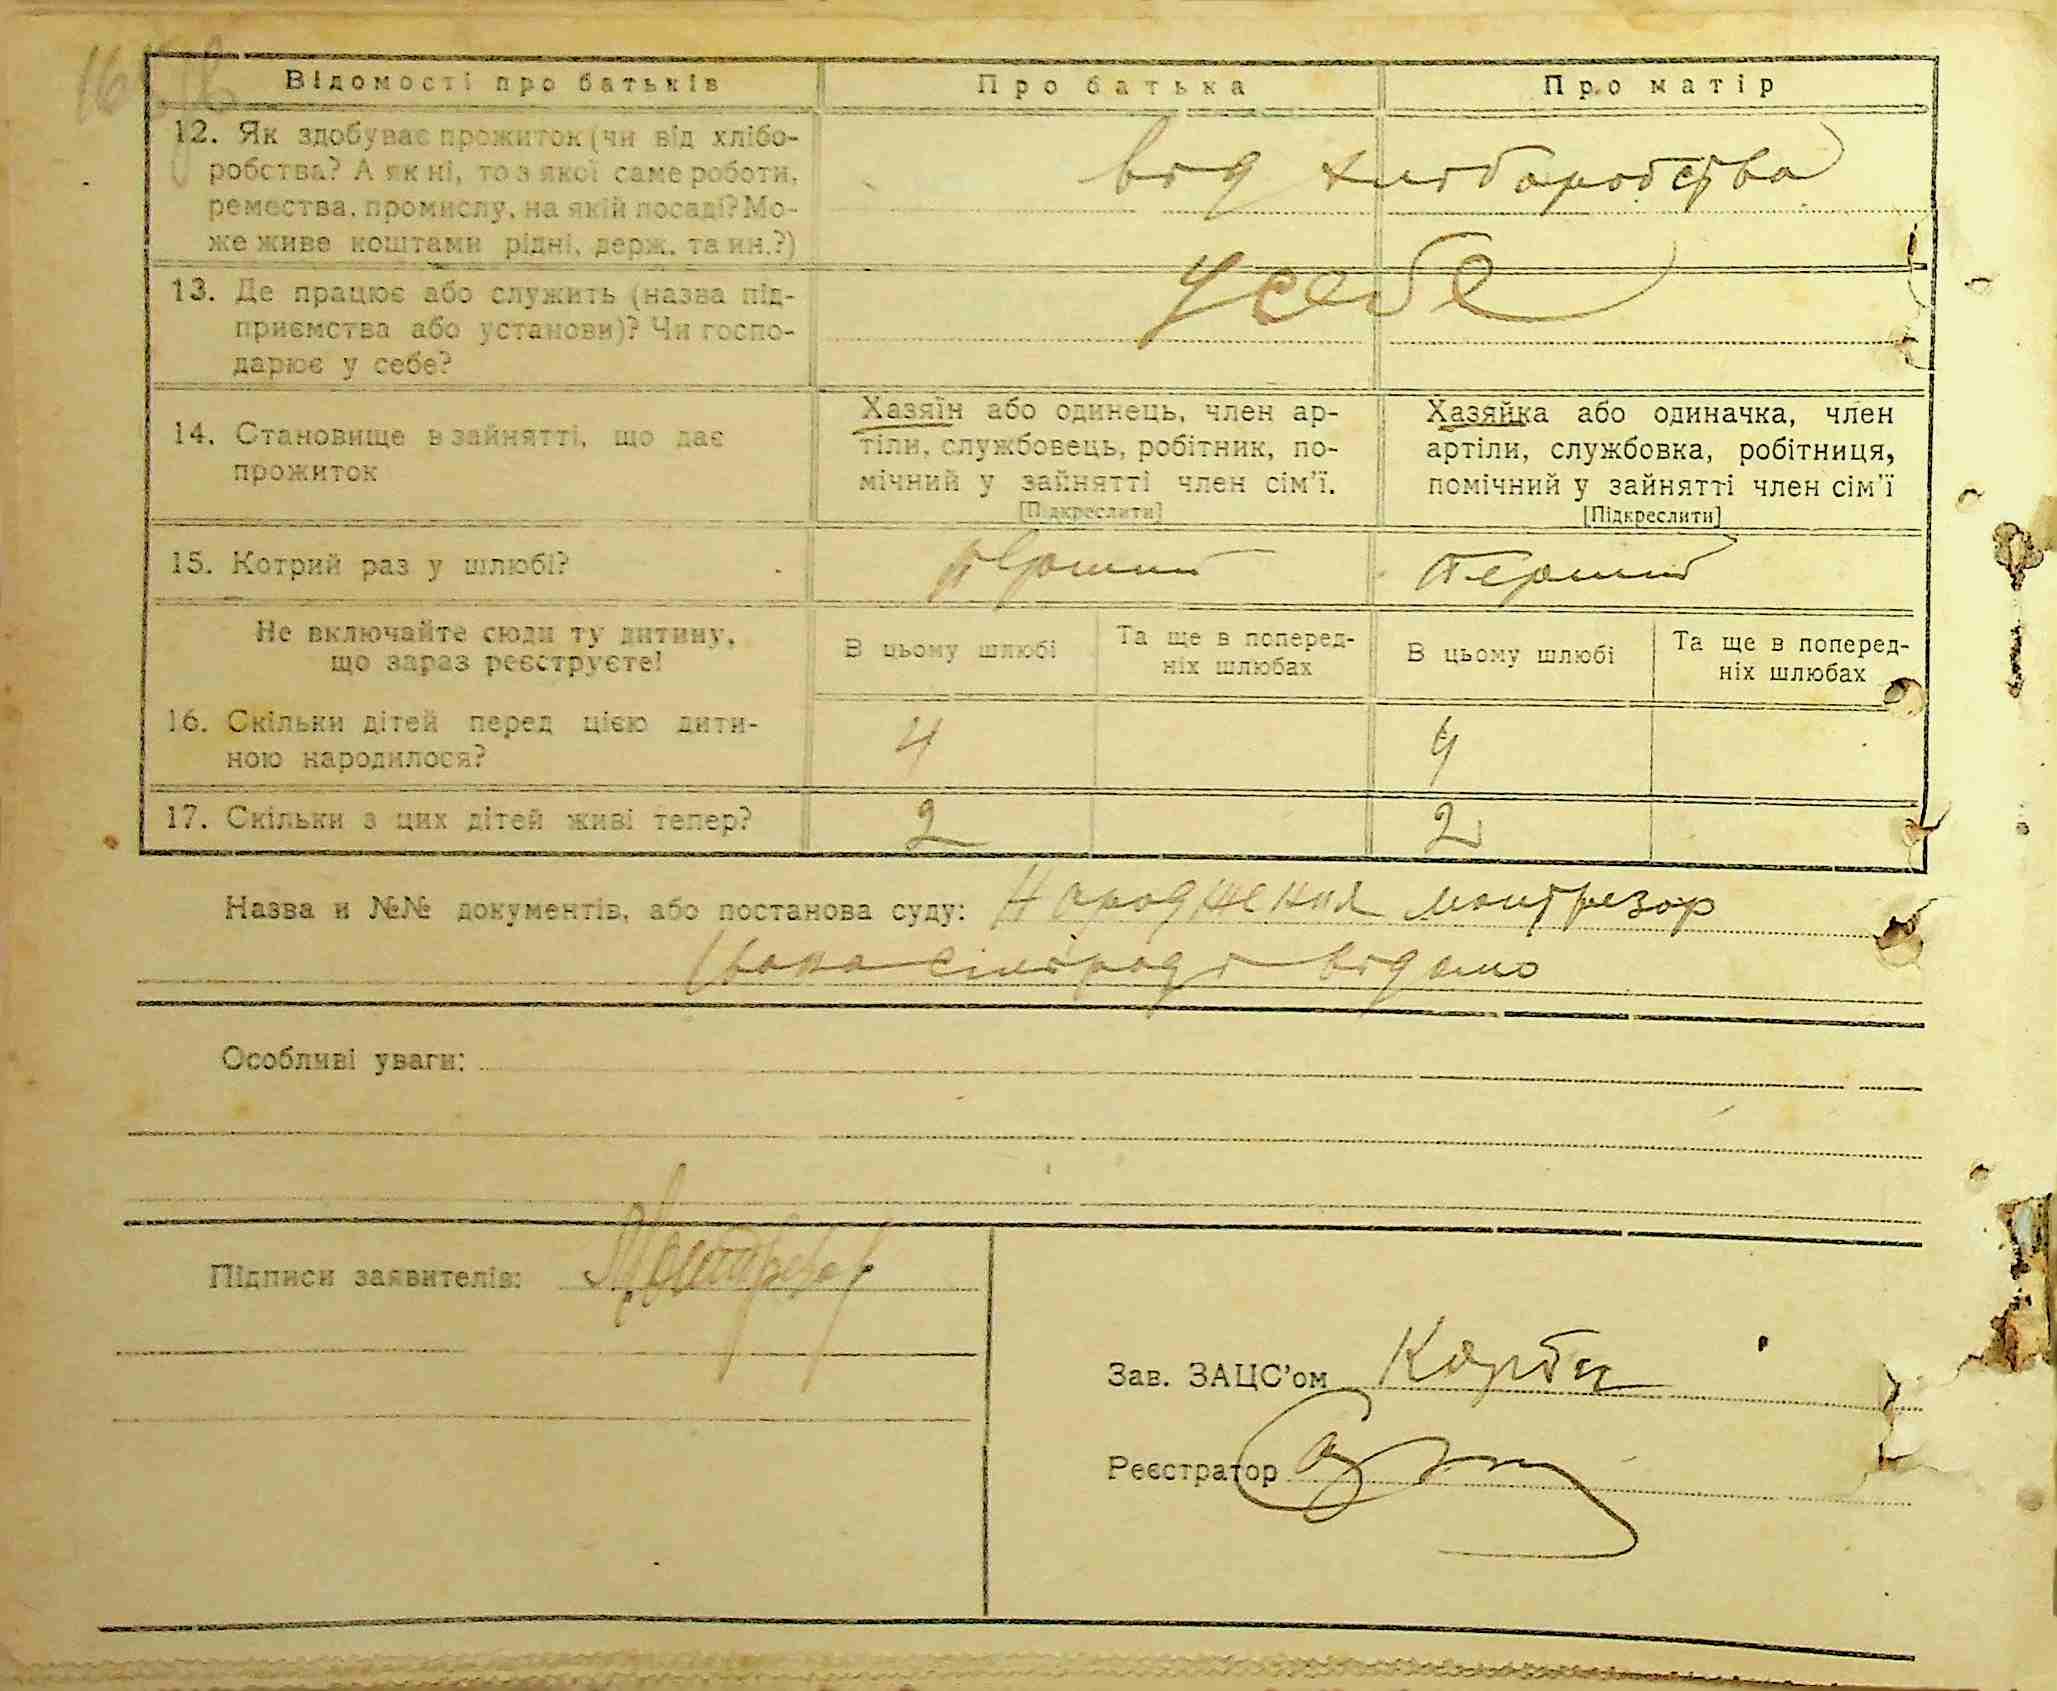 Відомості про батьків Про батька Про матір
12. Як здобуває прожиток (чи від хлібо-
робства? А як ні, то з якої саме роботи,
ремества, промислу, на якій посаді? Мо-
же живе коштами рідні, держ. та ин.?)
від хліборобства
13. Де працює або служить (назва під-
приємства або установи)? Чи госпо-
дарює у себе?
у себе
14. Становище в зайнятті, що дає
прожиток
Хазяїн або одинець, член ар-
тіли, службовець, робітник, по-
мічний у зайнятті член сім'ї.
[Підкреслити]
Хазяйка або одиначка, член
артіли, службовка, робітниця,
помічний у зайнятті член сім'ї
[Підкреслити]
15. Котрий раз у шлюбі? перший перший
Не включайте сюди ту дитину,
що зараз реєструєте!
В цьому шлюбі
Та ще в поперед-
ніх шлюбах
В цьому шлюбі
Та ще в поперед-
ніх шлюбах
16. Скільки дітей перед цією дити-
ною народилося?
4 4
17. Скільки з цих дітей живі тепер? 2 2
Назва и №№ документів, або постанова суду: Народження монтрезор
Івана сільраді відомо
Особливі уваги:
Підписи заявителів: Монтрезор
Зав. ЗАЦС'ом
Реєстратор